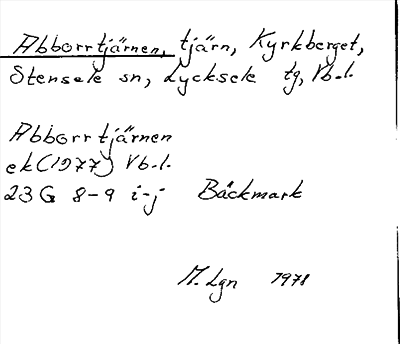 Abborrtjärnen, tjärn, Kyrkberget,
Stensele sn, Lycksele tg, Vb.l.
Abborrtjärnen
ek(1977) Vb.l.
23G 8-9 i-j Bäckmark
M. Lgn 1978